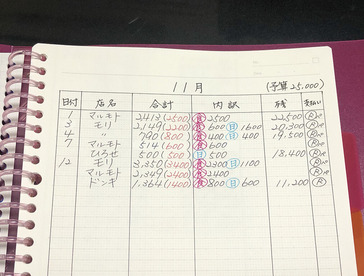 11月 (予算25,000)
日付 店名 合計 内訳 残 支払い
1 マルモト 2,413(2500) 食2500 22,500 R
3 モリ 2,149(2200) 食600 日1600 20,300 R
4 〃 790(800) 食400 日400 19,500 R
7 マルモト 514(600) 食600 R
ひろせ 500(500) 日500 18,400 R
12 モリ 3,350(3400) 食2300 日1100 R
マルモト 2,349(2400) 食2400 R
ドンキ 1,364(1400) 食800 日600 11,200 R